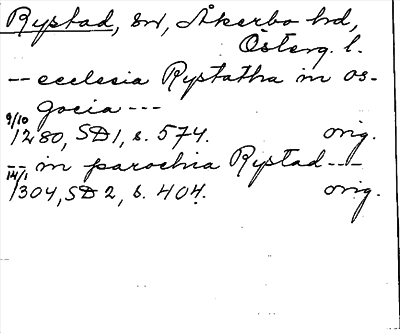 Rystad, sn, Åkerbo hd,
Österg. l.
-- ecclesia Rystatha in os-
gocia ---
9/10 1280, SD 1, s. 574. orig.
-- in parochia Rystad ---
14/1 1304, SD 2, s. 404. orig.